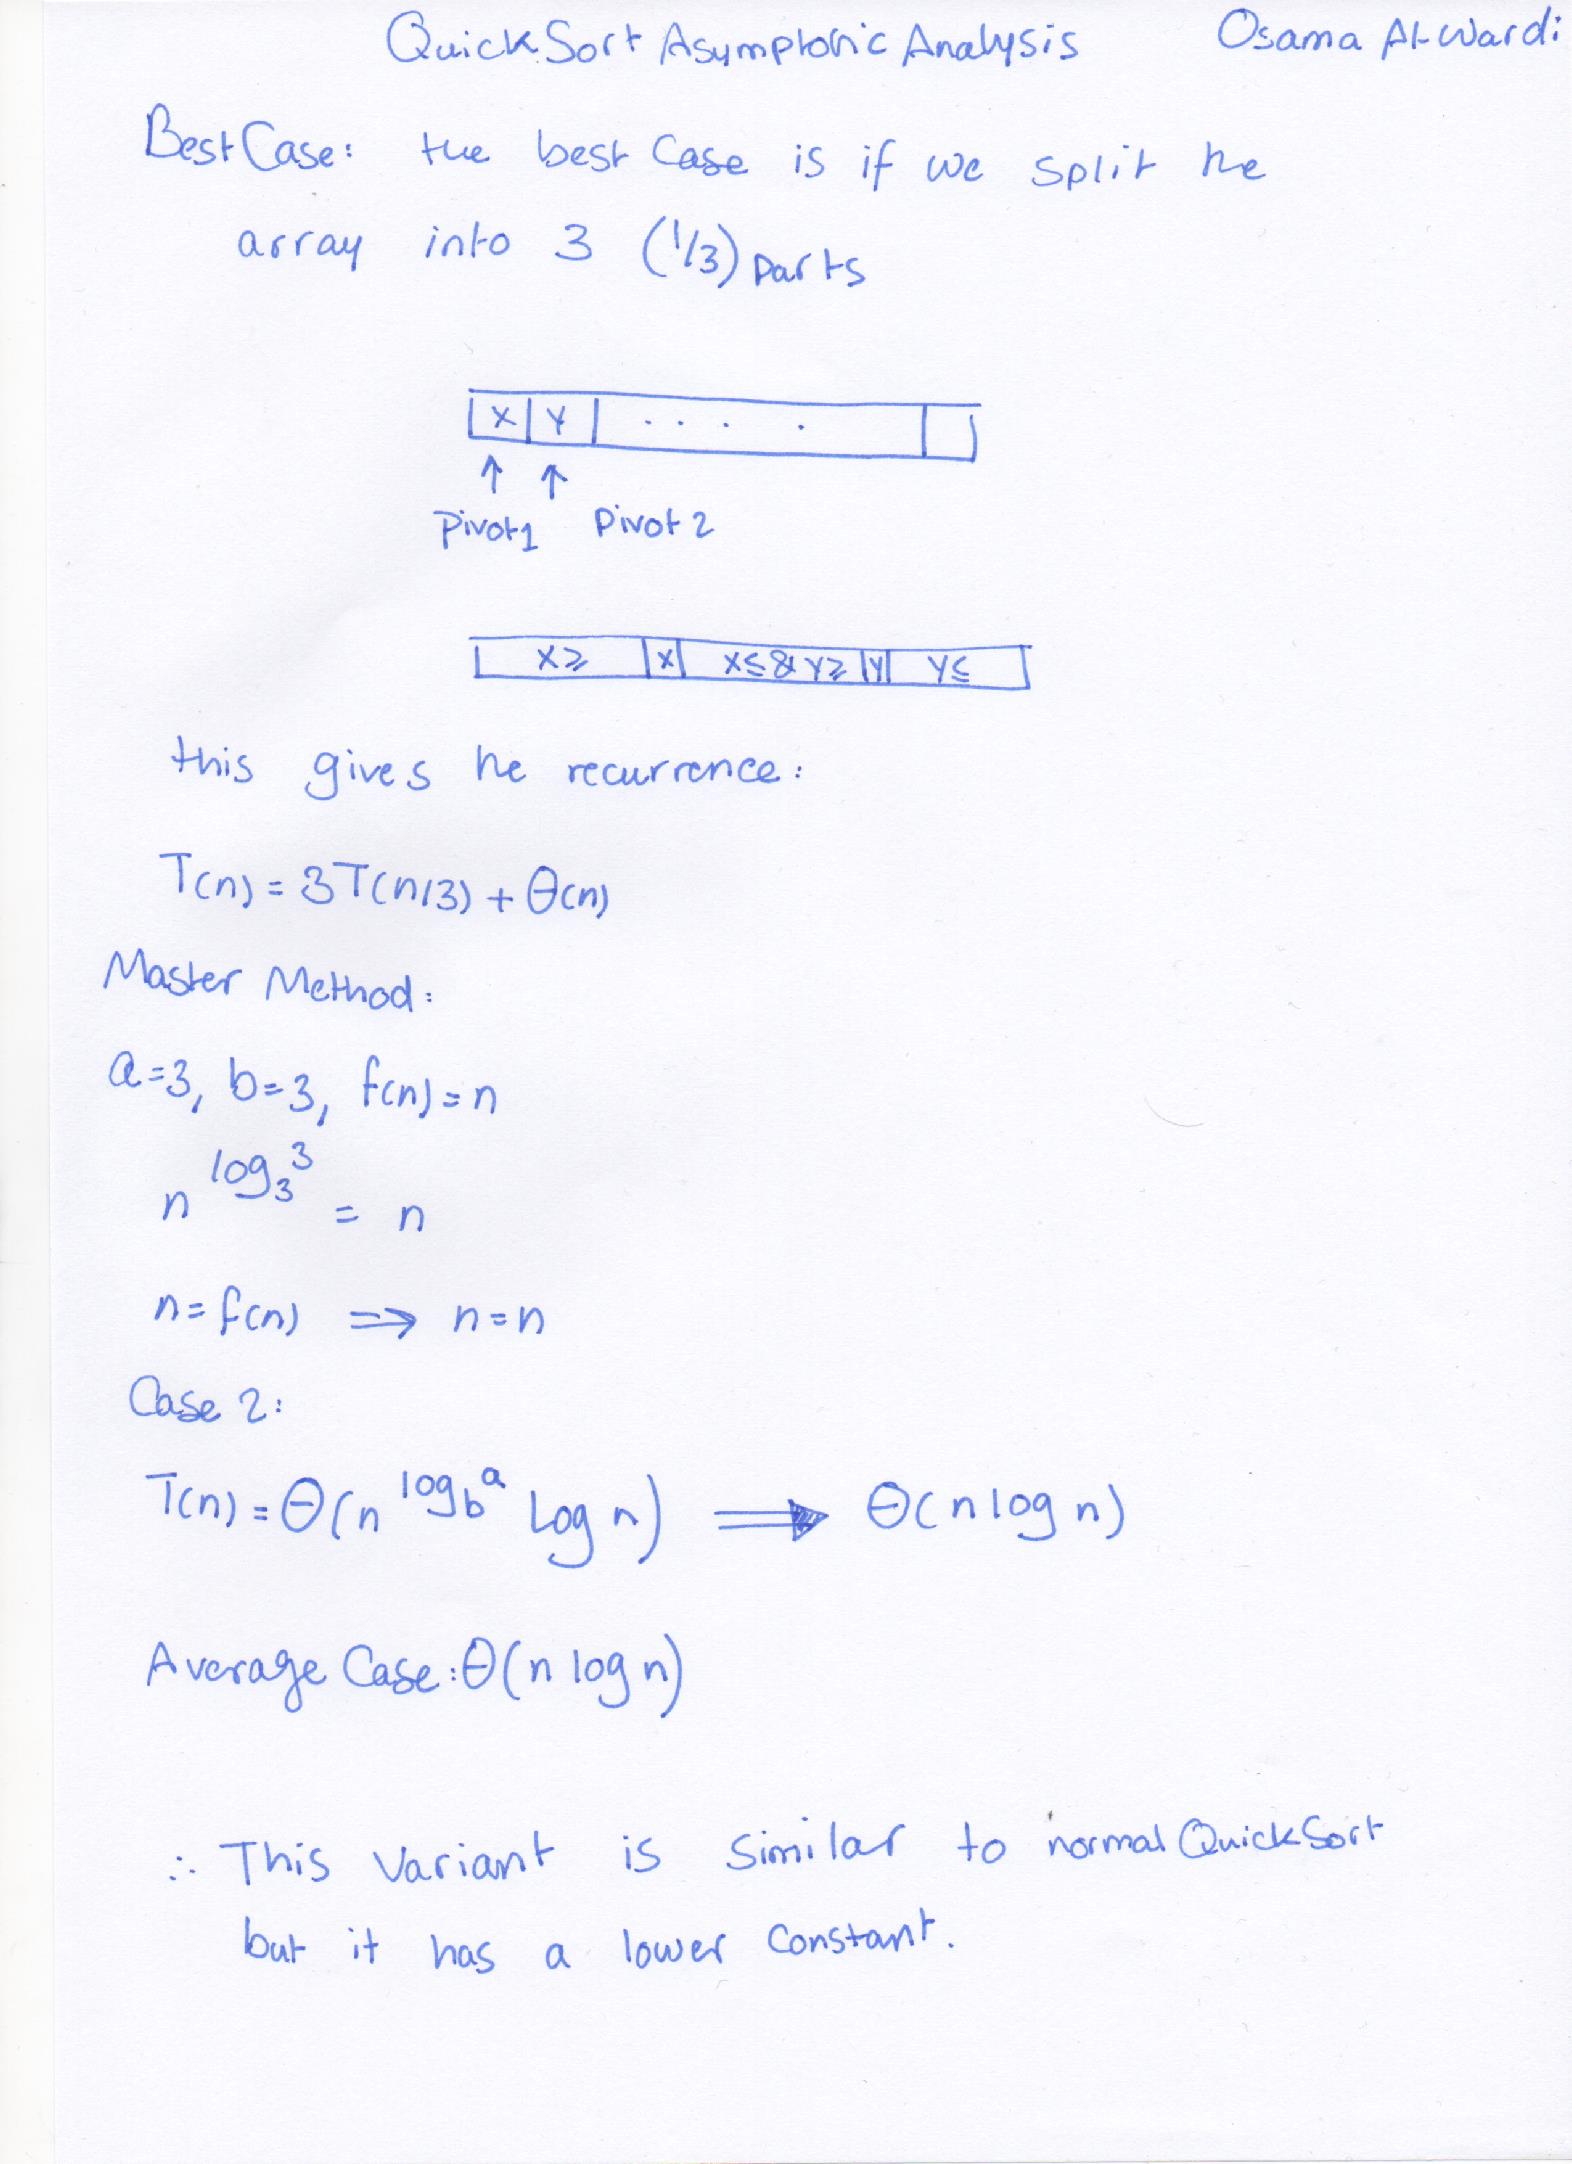 QuickSort Asymptotic Analysis Osama Al-Wardi
Best Case: the best Case is if we split the
array into 3 (1/3) parts
X Y . . . . .
↑ ↑
Pivot1 Pivot 2
X≥ X X≤ & Y≥ Y Y≤
this gives the recurrence:
T(n) = 3T(n/3) + Θ(n)
Master Method:
a=3, b=3, f(n)=n
n^log₃3 = n
n = f(n) ⇒ n=n
Case 2:
T(n) = Θ(n^log_b a Log n) ⇒ Θ(n log n)
Average Case: Θ(n log n)
∴ This Variant is Similar to normal QuickSort
but it has a lower Constant.